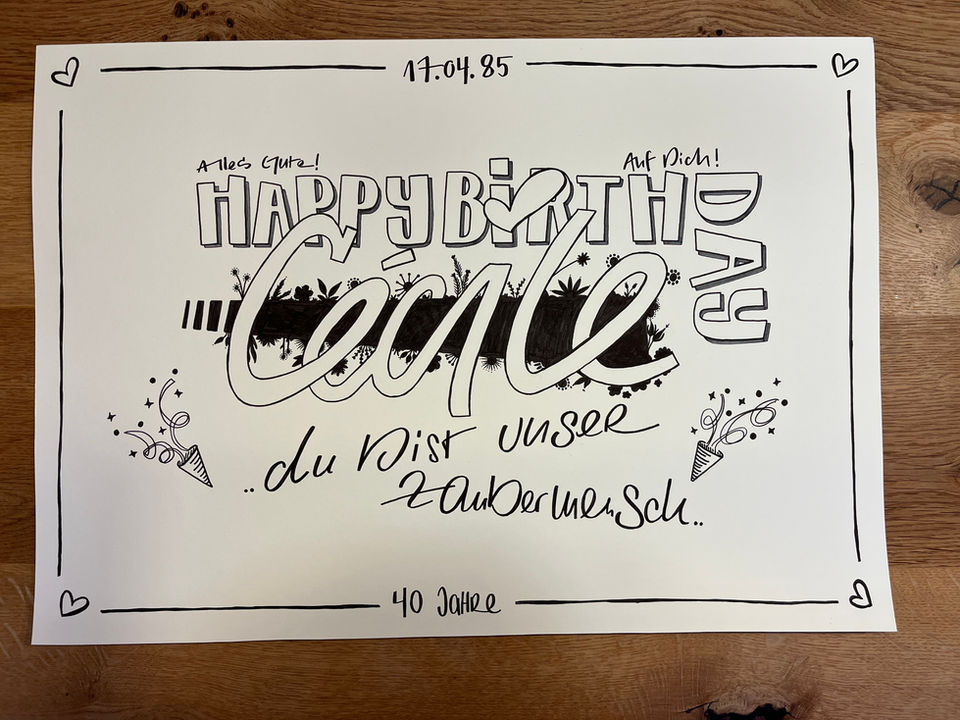 17.04.85
Alles Gute!
Auf Dich!
HAPPY BiRTHDAY
Cécile
..du bist unser
zaubermensch..
40 Jahre